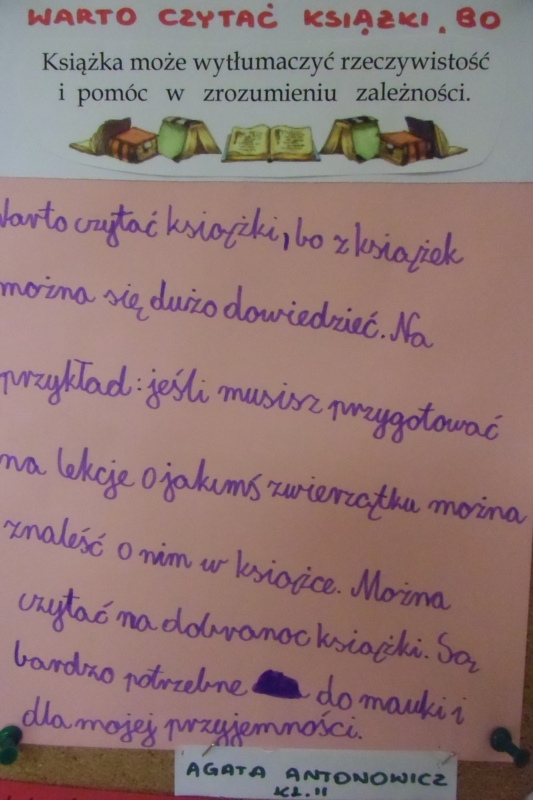 WARTO CZYTAĆ KSIĄŻKI, BO
Książka może wytłumaczyć rzeczywistość
i pomóc w zrozumieniu zależności.
Warto czytać książki, bo z książek
można się dużo dowiedzieć. Na
przykład: jeśli musisz przygotować
na lekcje o jakimś zwierzątku można
znaleść o nim w książce. Można
czytać na dobranoc książki. Są
bardzo potrzebne do nauki i
dla mojej przyjemności.
AGATA ANTONOWICZ
KL. II